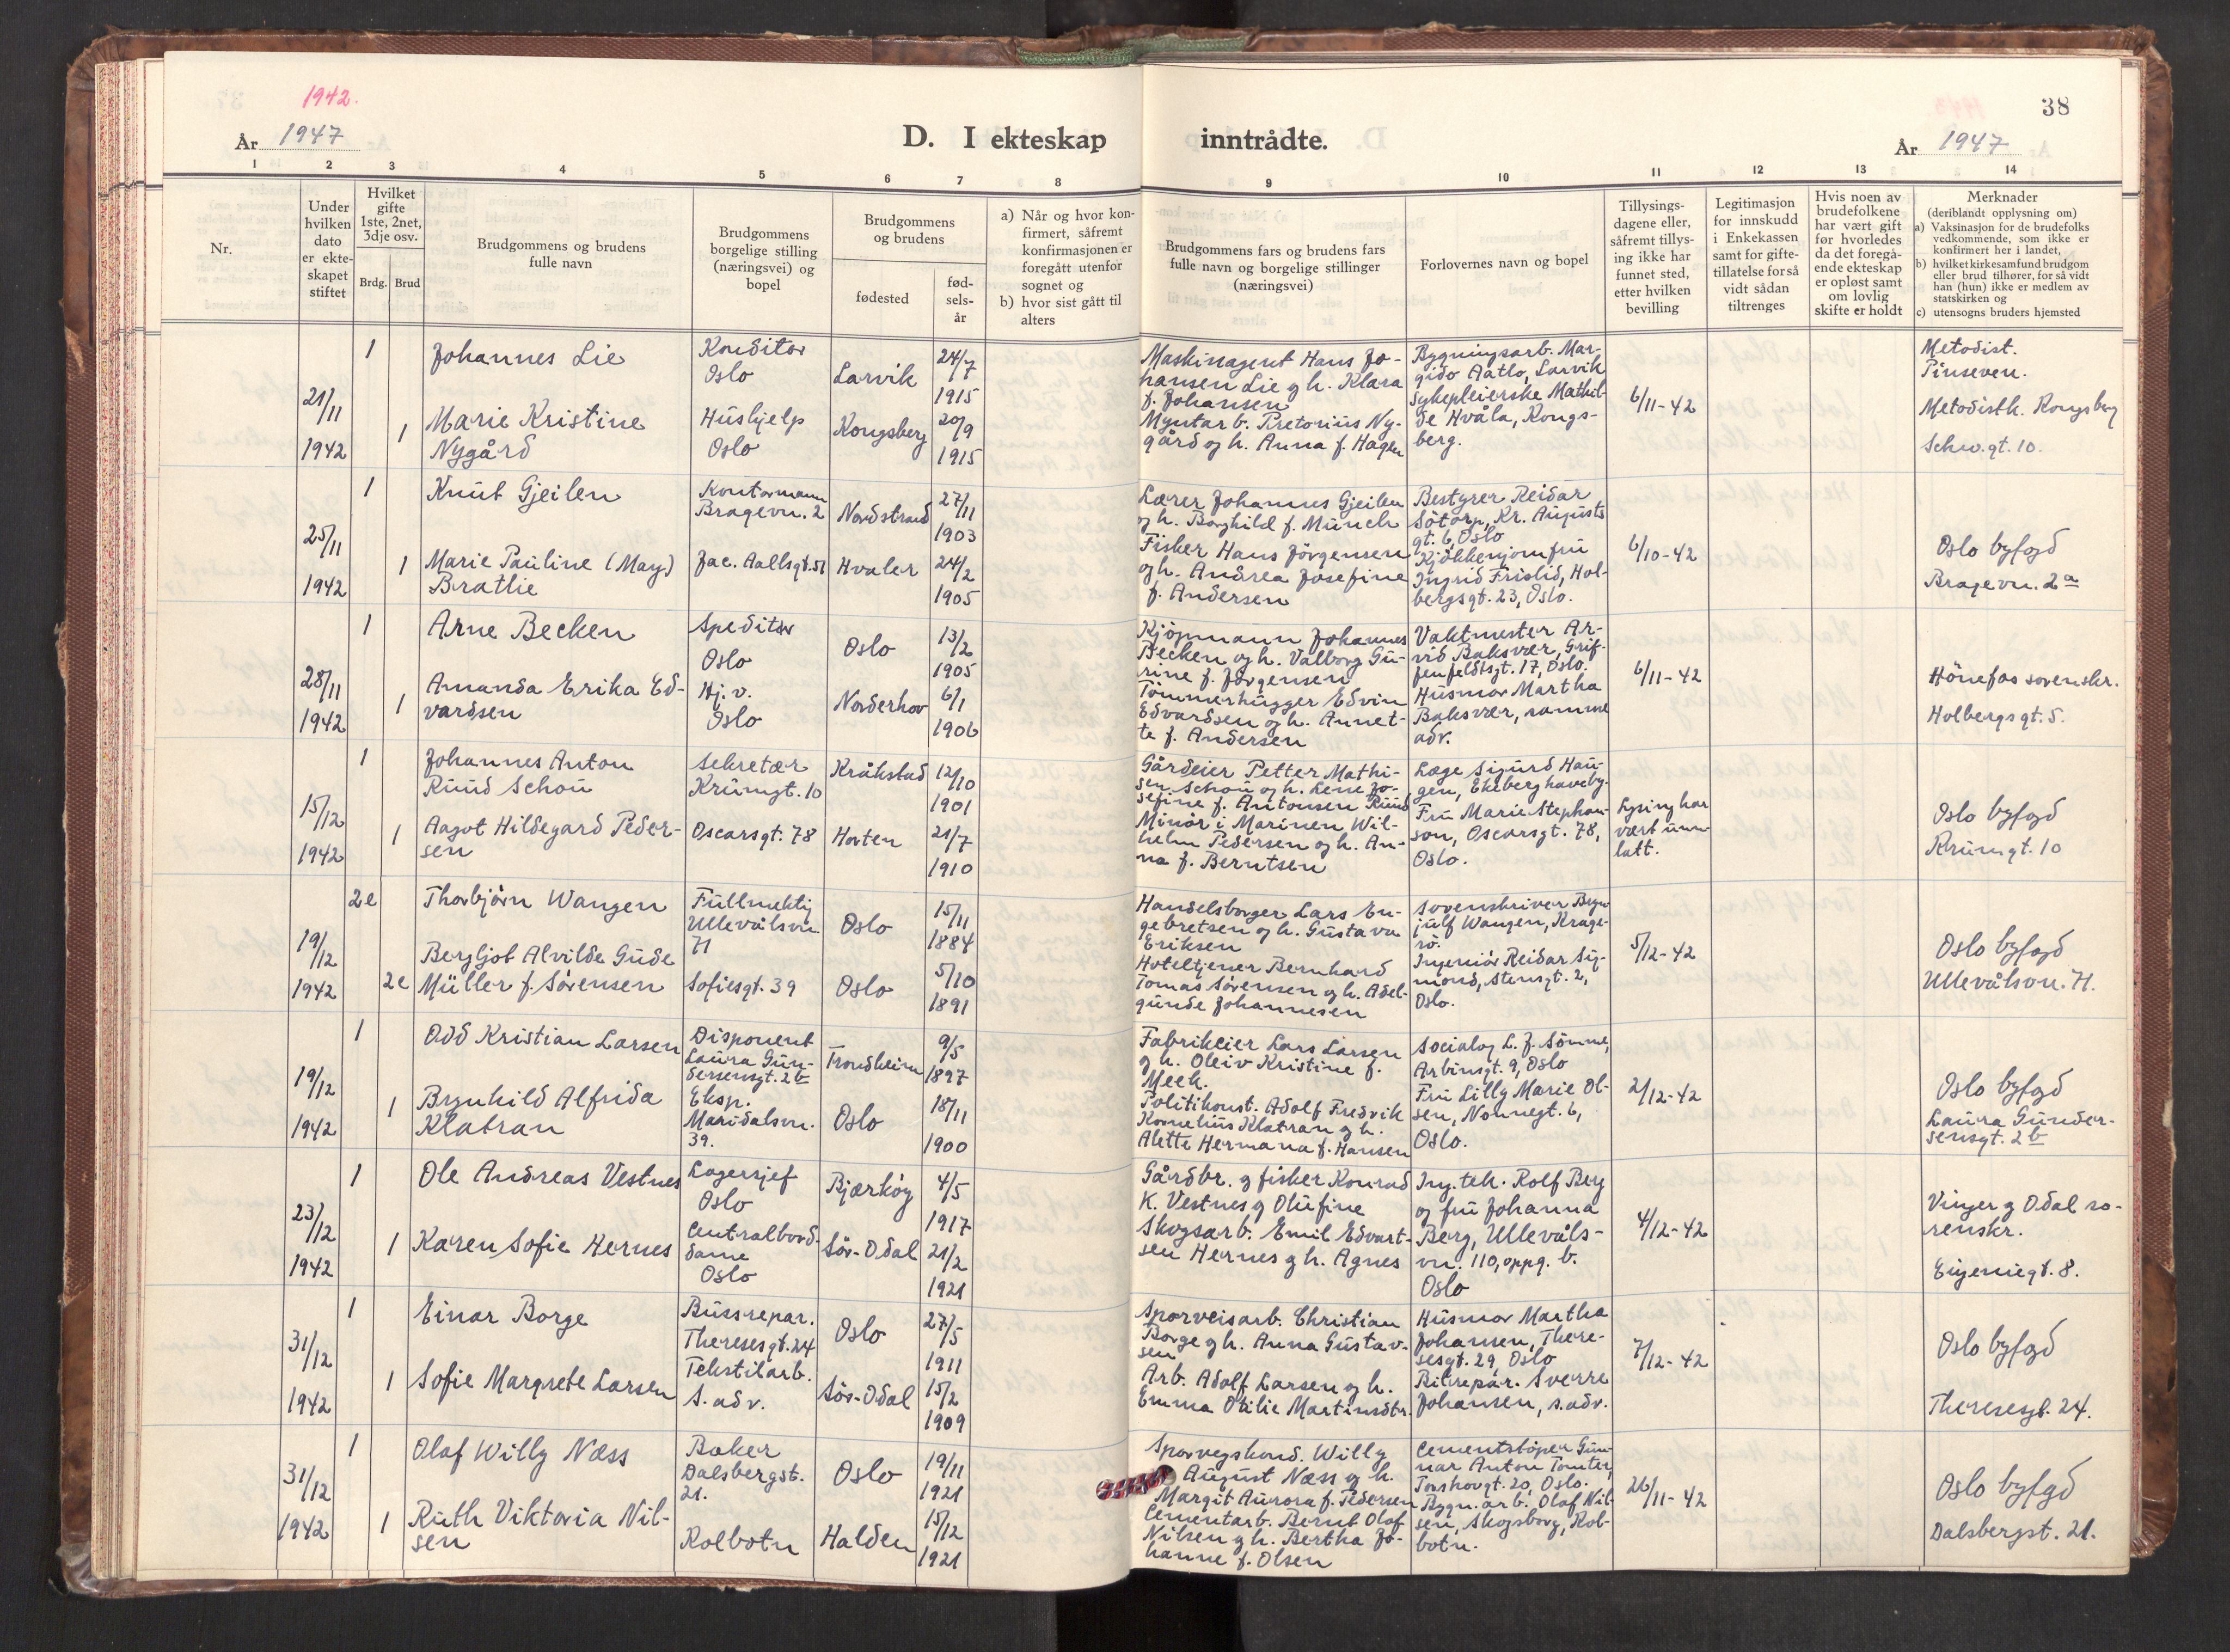 1942.
År 1947
D. I ekteskap inntrådte.
38
År 1947
1 2 3 4 5 6 7 8 9 10 11 12 13 14
Nr.
Under
hvilken
dato
er ekte-
skapet
stiftet
Hvilket
gifte
1ste, 2net,
3dje osv.
Brdg. Brud
Brudgommens og brudens
fulle navn
Brudgommens
borgelige stilling
(næringsvei) og
bopel
Brudgommens
og brudens
fødested
fød-
sels-
år
a) Når og hvor kon-
firmert, såfremt
konfirmasjonen er
foregått utenfor
sognet og
b) hvor sist gått til
alters
Brudgommens fars og brudens fars
fulle navn og borgelige stillinger
(næringsvei)
Forlovernes navn og bopel
Tillysings-
dagene eller,
såfremt tillys-
ing ikke har
funnet sted,
etter hvilken
bevilling
Legitimasjon
for innskudd
i Enkekassen
samt for gifte-
tillatelse for så
vidt sådan
tiltrenges
Hvis noen av
brudefolkene
har vært gift
før hvorledes
da det foregå-
ende ekteskap
er opløst samt
om lovlig
skifte er holdt
Merknader
(deriblandt opplysning om)
a) Vaksinasjon for de brudefolks
vedkommende, som ikke er
konfirmert her i landet,
b) hvilket kirkesamfund brudgom
eller brud tilhører, for så vidt
han (hun) ikke er medlem av
statskirken og
c) utensogns bruders hjemsted
21/11
1942
1
Johannes Lie
Konditor
Oslo
Larvik
24/7
1915
1
Marie Kristine
Nygård
Hushjelp
Oslo
Kongsberg
20/9
1915
Maskinagent Hans Jo-
hansen Lie og h. Klara
f. Johansen
Myntarb. Pretorius Ny-
gård og h. Anna f. Hagen
Bygningsarb. Mar-
gido Aatlo, Larvik
Sykepleierske Mathil-
de Hvåla, Kongs-
berg.
6/11-42
Metodist.
Pinseven.
Metodistk. Kongsberg
Schw.gt. 10.
25/11
1942
1
Knut Gjeilen
Kontormann
Bragevn. 2
Nordstrand
27/11
1903
1
Marie Pauline (May)
Bratlie
Jac. Aallsgt. 51
Hvaler
24/2
1905
Lærer Johannes Gjeilen
og h. Borghild f. Münch
Fisker Hans Jörgensen
og h. Andrea Josefine
f. Andersen
Bestyrer Reidar
Sötorp, Kr. Augusts
gt. 6, Oslo
Kjökkenjomfru
Ingrid Frislid, Hol-
bergsgt. 23, Oslo.
6/10-42
Oslo byfogd
Bragevn. 2a
28/11
1942
1
Arne Becken
Speditør
Oslo
Oslo
13/2
1905
1
Amanda Erika Ed-
vardsen
Hj.v.
Oslo
Norderhov
6/1
1906
Kjöpmann Johannes
Becken og h. Valborg Gu-
rine f. Jörgensen
Tömmerhugger Edvin
Edvardsen og h. Annet-
te f. Andersen
Vaktmester Ar-
vid Baksvær, Grif-
fenfeldtsgt. 17, Oslo.
Husmor Martha
Baksvær, samme
adr.
6/11-42
Hönefos sorenskr.
Holbergsgt. 5.
15/12
1942
1
Johannes Anton
Ruud Schou
Sekretær
Krumgt. 10
Kråkstad
12/10
1901
1
Aagot Hildegard Peder-
sen
Oscarsgt. 78
Horten
21/7
1910
Gårdeier Petter Mathi-
sen Schou og h. Lene Jo-
sefine f. Antonsen Ruud
Minör i Marinen Wil-
helm Pedersen og h. An-
na f. Berntsen
Læge Sigurd Hau-
gen, Ekeberg haveby.
Fru Marie Stephan-
son, Oscarsgt. 78,
Oslo.
Lysing har
vært unn-
latt.
Oslo byfogd
Krumgt. 10
19/12
1942
2e
Thorbjörn Wangen
Fullmektig
Ullevålsvn.
71
Oslo
15/11
1884
2e
Bergljot Alvilde Gude
Müller f. Sörensen
Sofiesgt. 39
Oslo
5/10
1891
Handelsborger Lars En-
gebretsen og h. Gustava
Eriksen
Hoteltjener Bernhard
Tomas Sörensen og h. Adel-
gunde Johannesen
Sorenskriver Bryn-
julf Wangen, Krage-
rö.
Ingeniör Reidar Sig-
mond, Stensgt. 2,
Oslo.
5/12-42
Oslo byfogd
Ullevålsvn. 71.
19/12
1942
1
Odd Kristian Larsen
Disponent
Laura Gun-
dersensgt. 2b
Trondheim
9/5
1897
1
Brynhild Alfrida
Klatran
Eksp.
Maridalsvn.
39.
Oslo
18/11
1900
Fabrikeier Lars Larsen
og h. Oleiv Kristine f.
Meek.
Politikonst. Adolf Fredrik
Kornelius Klatran og h.
Alette Hermana f. Hansen
Socialog L. f. Sömme,
Arbinsgt. 9, Oslo
Fru Lilly Marie Ol-
sen, Nonnegt. 6,
Oslo.
2/12-42
Oslo byfogd
Laura Gunder-
sensgt. 2b
23/12
1942
1
Ole Andreas Vestnes
Lagersjef
Oslo
Bjærköy
4/5
1917
1
Karen Sofie Hernes
Centralbord-
dame
Oslo
Sör-Odal
21/2
1921
Gårdbr. og fisker Konrad
K. Vestnes og Olufine
Skogsarb. Emil Edvart-
sen Hernes og h. Agnes
Ing. tek. Rolf Berg
og fru Johanna
Berg, Ullevåls-
vn. 110, oppg. b.
Oslo
4/12-42
Vinger og Odal so-
renskr.
Eugeniegt. 8.
31/12
1942
1
Einar Borge
Bussrepar.
Theresesgt. 24
Oslo
27/5
1911
1
Sofie Margrete Larsen
Tekstilarb.
S. adr.
Sör-Odal
15/2
1909
Sporveisarb. Christian
Borge og h. Anna Gustav-
sen
Arb. Adolf Larsen og h.
Emma Otilie Martinsdtr.
Husmor Martha
Johansen, There-
sesgt. 29, Oslo
Bilrepar. Sverre
Johansen, s. adr.
7/12-42
Oslo byfogd
Theresesgt. 24.
31/12
1942
1
Olaf Willy Næss
Baker
Dalsbergst.
21.
Oslo
19/11
1921
1
Ruth Viktoria Nil-
sen
Kolbotn
Halden
15/12
1921
Sporvegskond. Willy
August Næss og h.
Margit Aurora f. Pedersen
Cementarb. Bernt Olaf
Nilsen og h. Bertha Jo-
hanne f. Olsen
Cementstöper Gun-
nar Anton Tomter,
Torshovgt. 20, Oslo.
Bygn.arb. Olaf Nil-
sen, Skogsborg, Kol-
botn.
26/11-42
Oslo byfogd
Dalsbergst. 21.